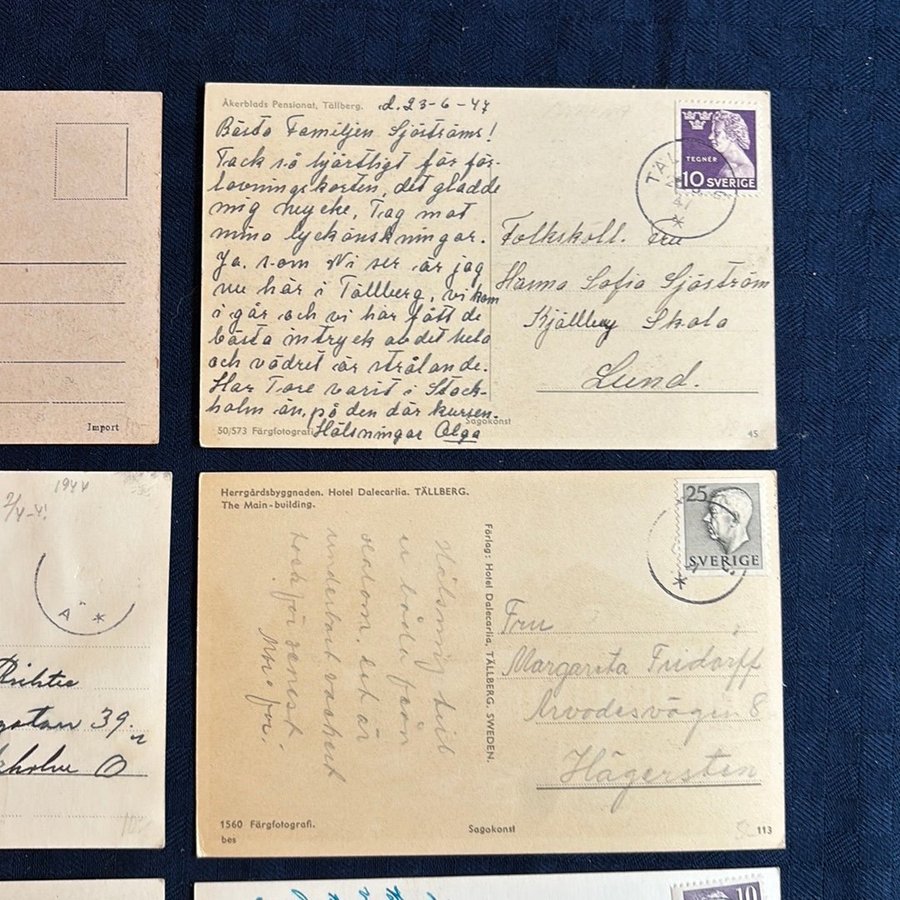 Import
Åkerblads Pensionat, Tällberg. d. 23-6-47
Bästa Familjen Sjöströms!
Tack så hjärtligt för för-
lovningskorten, det gladde
mig mycke. Tag mot
mina lyckönskningar.
Ja, som Ni ser är jag
nu här i Tällberg, vi kom
i går och vi har fått de
bästa intryck av det hela
och vädret är strålande.
Har Tore varit i Stock-
holm än, på den där kursen.
Hälsningar Olga
50/573 Färgfotografi
Sagokonst
45
TEGNÉR
10 SVERIGE
TÄL
47
Folkskoll. Fru
Hanna Sofia Sjöström
Kjällby Skola
Lund.
1944
gatan 39.
kholm Ö
Herrgårdsbyggnaden. Hotel Dalecarlia. TÄLLBERG.
The Main-building.
Hälsning till
er båda från
det är
underbart vackert
tack för senast.
Förlag: Hotel Dalecarlia, TÄLLBERG, SWEDEN.
25
SVERIGE
Fru
Margareta Fridorff
Arvodesvägen 8
Hägersten
1560 Färgfotografi.
bes
Sagokonst
113
10